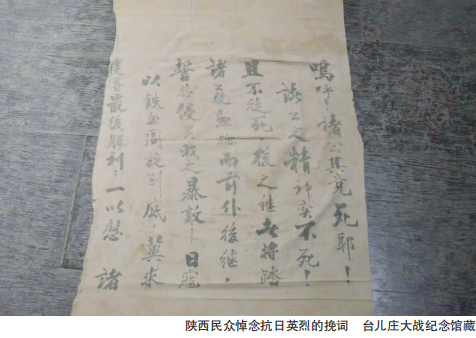 嗚呼！諸公其竟死耶！
諸公之精神实不死！
且不徒死，後之继者将踏
諸公血跡而前仆後继，
誓與侵畧我之暴敵—日寇
以鉄血周旋到底，冀求
最後勝利；一以慰 諸
陕西民众悼念抗日英烈的挽词 台儿庄大战纪念馆藏